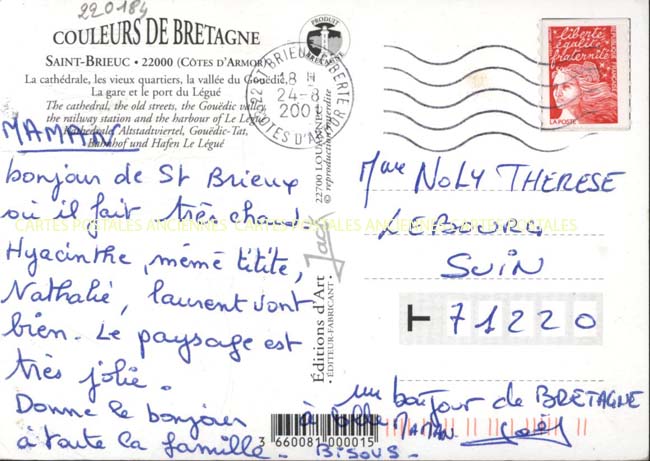 220184
COULEURS DE BRETAGNE
SAINT-BRIEUC · 22000 (CÔTES D'ARMOR)
La cathédrale, les vieux quartiers, la vallée du Gouëdic
La gare et le port du Légué
The cathedral, the old streets, the Gouëdic valley,
the railway station and the harbour of Le Légué
Kathedrale, Altstadtviertel, Gouëdic-Tat,
Bahnhof und Hafen Le Légué
PRODUIT
EN BRETAGNE
18 H
24-8
2001
CÔTES D'ARMOR
liberté
égalité
fraternité
RÉPUBLIQUE FRANÇAISE
LA POSTE
MAMAN
bonjour de St Brieux
où il fait très chaud
Hyacinthe, mémé titite,
Nathalie, laurent vont
bien. Le paysage est
très jolie.
Donne le bonjour
à toute la famille. BISOUS.
22700 LOUANNEC
© reproduction interdite
Jack
Éditions d'Art
· ÉDITEUR-FABRICANT ·
Mme NOLY THERESE
LE BOURG
SUIN
71220
un bonjour de BRETAGNE
MAMAN
3 660081 000015
CARTES POSTALES ANCIENNES CARTES POSTALES ANCIENNES CARTES POSTALES